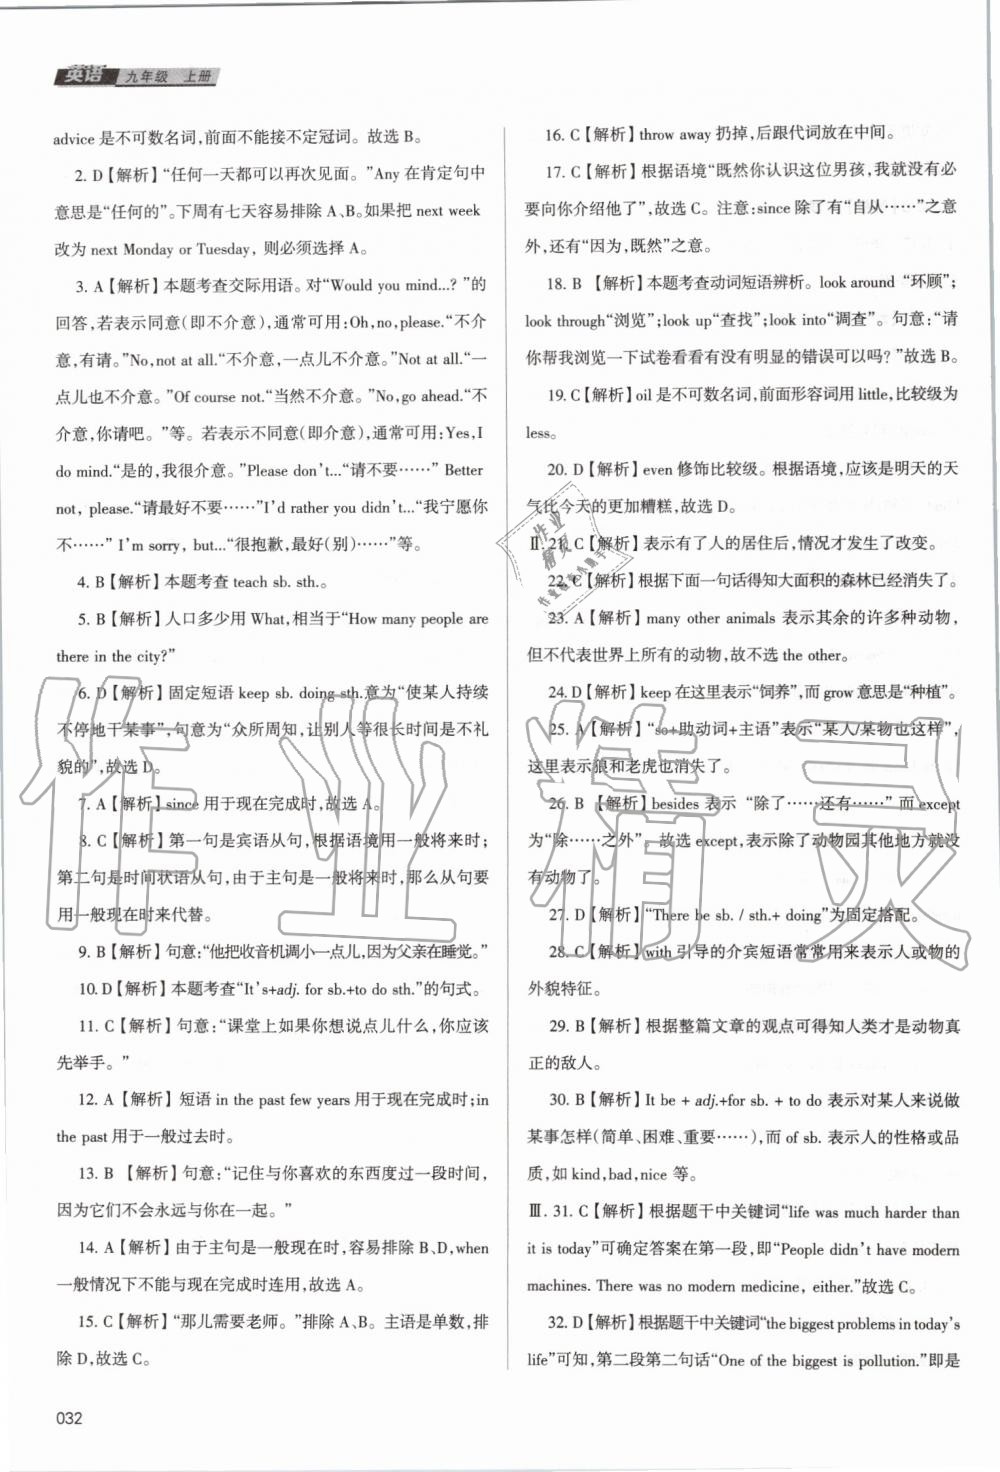 英语 九年级 上册
advice 是不可数名词,前面不能接不定冠词。故选 B。
2. D【解析】“任何一天都可以再次见面。”Any 在肯定句中
意思是“任何的”。下周有七天容易排除 A、B。如果把 next week
改为 next Monday or Tuesday, 则必须选择 A。
3. A【解析】本题考查交际用语。对“Would you mind...? ”的
回答,若表示同意(即不介意),通常可用:Oh,no,please.“不介
意,有请。”No,not at all.“不介意,一点儿不介意。”Not at all.“一
点儿也不介意。”Of course not.“当然不介意。”No,go ahead.“不
介意,你请吧。”等。若表示不同意(即介意),通常可用:Yes,I
do mind.“是的,我很介意。”Please don't...“请不要……” Better
not, please.“请最好不要……”I'd rather you didn't...“我宁愿你
不……” I'm sorry, but...“很抱歉,最好(别)……”等。
4. B【解析】本题考查 teach sb. sth.。
5. B【解析】人口多少用 What,相当于“How many people are
there in the city?”
6. D【解析】固定短语 keep sb. doing sth.意为“使某人持续
不停地干某事”,句意为“众所周知,让别人等很长时间是不礼
貌的”,故选 D。
7. A【解析】since 用于现在完成时,故选 A。
8. C【解析】第一句是宾语从句,根据语境用一般将来时;
第二句是时间状语从句,由于主句是一般将来时,那么从句要
用一般现在时来代替。
9. B【解析】句意:“他把收音机调小一点儿,因为父亲在睡觉。”
10. D【解析】本题考查“It's+adj. for sb.+to do sth.”的句式。
11. C【解析】句意:“课堂上如果你想说点儿什么,你应该
先举手。”
12. A【解析】短语 in the past few years 用于现在完成时;in
the past 用于一般过去时。
13. B 【解析】句意:“记住与你喜欢的东西度过一段时间,
因为它们不会永远与你在一起。”
14. A【解析】由于主句是一般现在时,容易排除 B、D,when
一般情况下不能与现在完成时连用,故选 A。
15. C【解析】“那儿需要老师。”排除 A、B。主语是单数,排
除 D,故选 C。
032
16. C【解析】throw away 扔掉,后跟代词放在中间。
17. C【解析】根据语境“既然你认识这位男孩,我就没有必
要向你介绍他了”,故选 C。注意:since 除了有“自从……”之意
外,还有“因为,既然”之意。
18. B 【解析】本题考查动词短语辨析。look around “环顾”;
look through“浏览”;look up“查找”;look into“调查”。句意:“请
你帮我浏览一下试卷看看有没有明显的错误可以吗? ”故选 B。
19. C【解析】oil 是不可数名词,前面形容词用 little,比较级为
less。
20. D【解析】even 修饰比较级。根据语境,应该是明天的天
气比今天的更加糟糕,故选 D。
Ⅱ. 21. C【解析】表示有了人的居住后,情况才发生了改变。
22. C【解析】根据下面一句话得知大面积的森林已经消失了。
23. A【解析】many other animals 表示其余的许多种动物,
但不代表世界上所有的动物,故不选 the other。
24. D【解析】keep 在这里表示“饲养”,而 grow 意思是“种植”。
25. A【解析】“so+助动词+主语”表示“某人/某物也这样”,
这里表示狼和老虎也消失了。
26. B 【解析】besides 表示 “除了……还有……”而 except
为“除……之外”。故选 except,表示除了动物园其他地方就没
有动物了。
27. D【解析】“There be sb. / sth.+ doing”为固定搭配。
28. C【解析】with 引导的介宾短语常常用来表示人或物的
外貌特征。
29. B【解析】根据整篇文章的观点可得知人类才是动物真
正的敌人。
30. B【解析】It be + adj.+for sb. + to do 表示对某人来说做
某事怎样(简单、困难、重要……),而 of sb. 表示人的性格或品
质,如 kind,bad,nice 等。
Ⅲ. 31. C【解析】根据题干中关键词“life was much harder than
it is today”可确定答案在第一段,即“People didn't have modern
machines. There was no modern medicine, either.”故选 C。
32. D【解析】根据题干中关键词“the biggest problems in today's
life”可知,第二段第二句话“One of the biggest is pollution.”即是
作业精灵